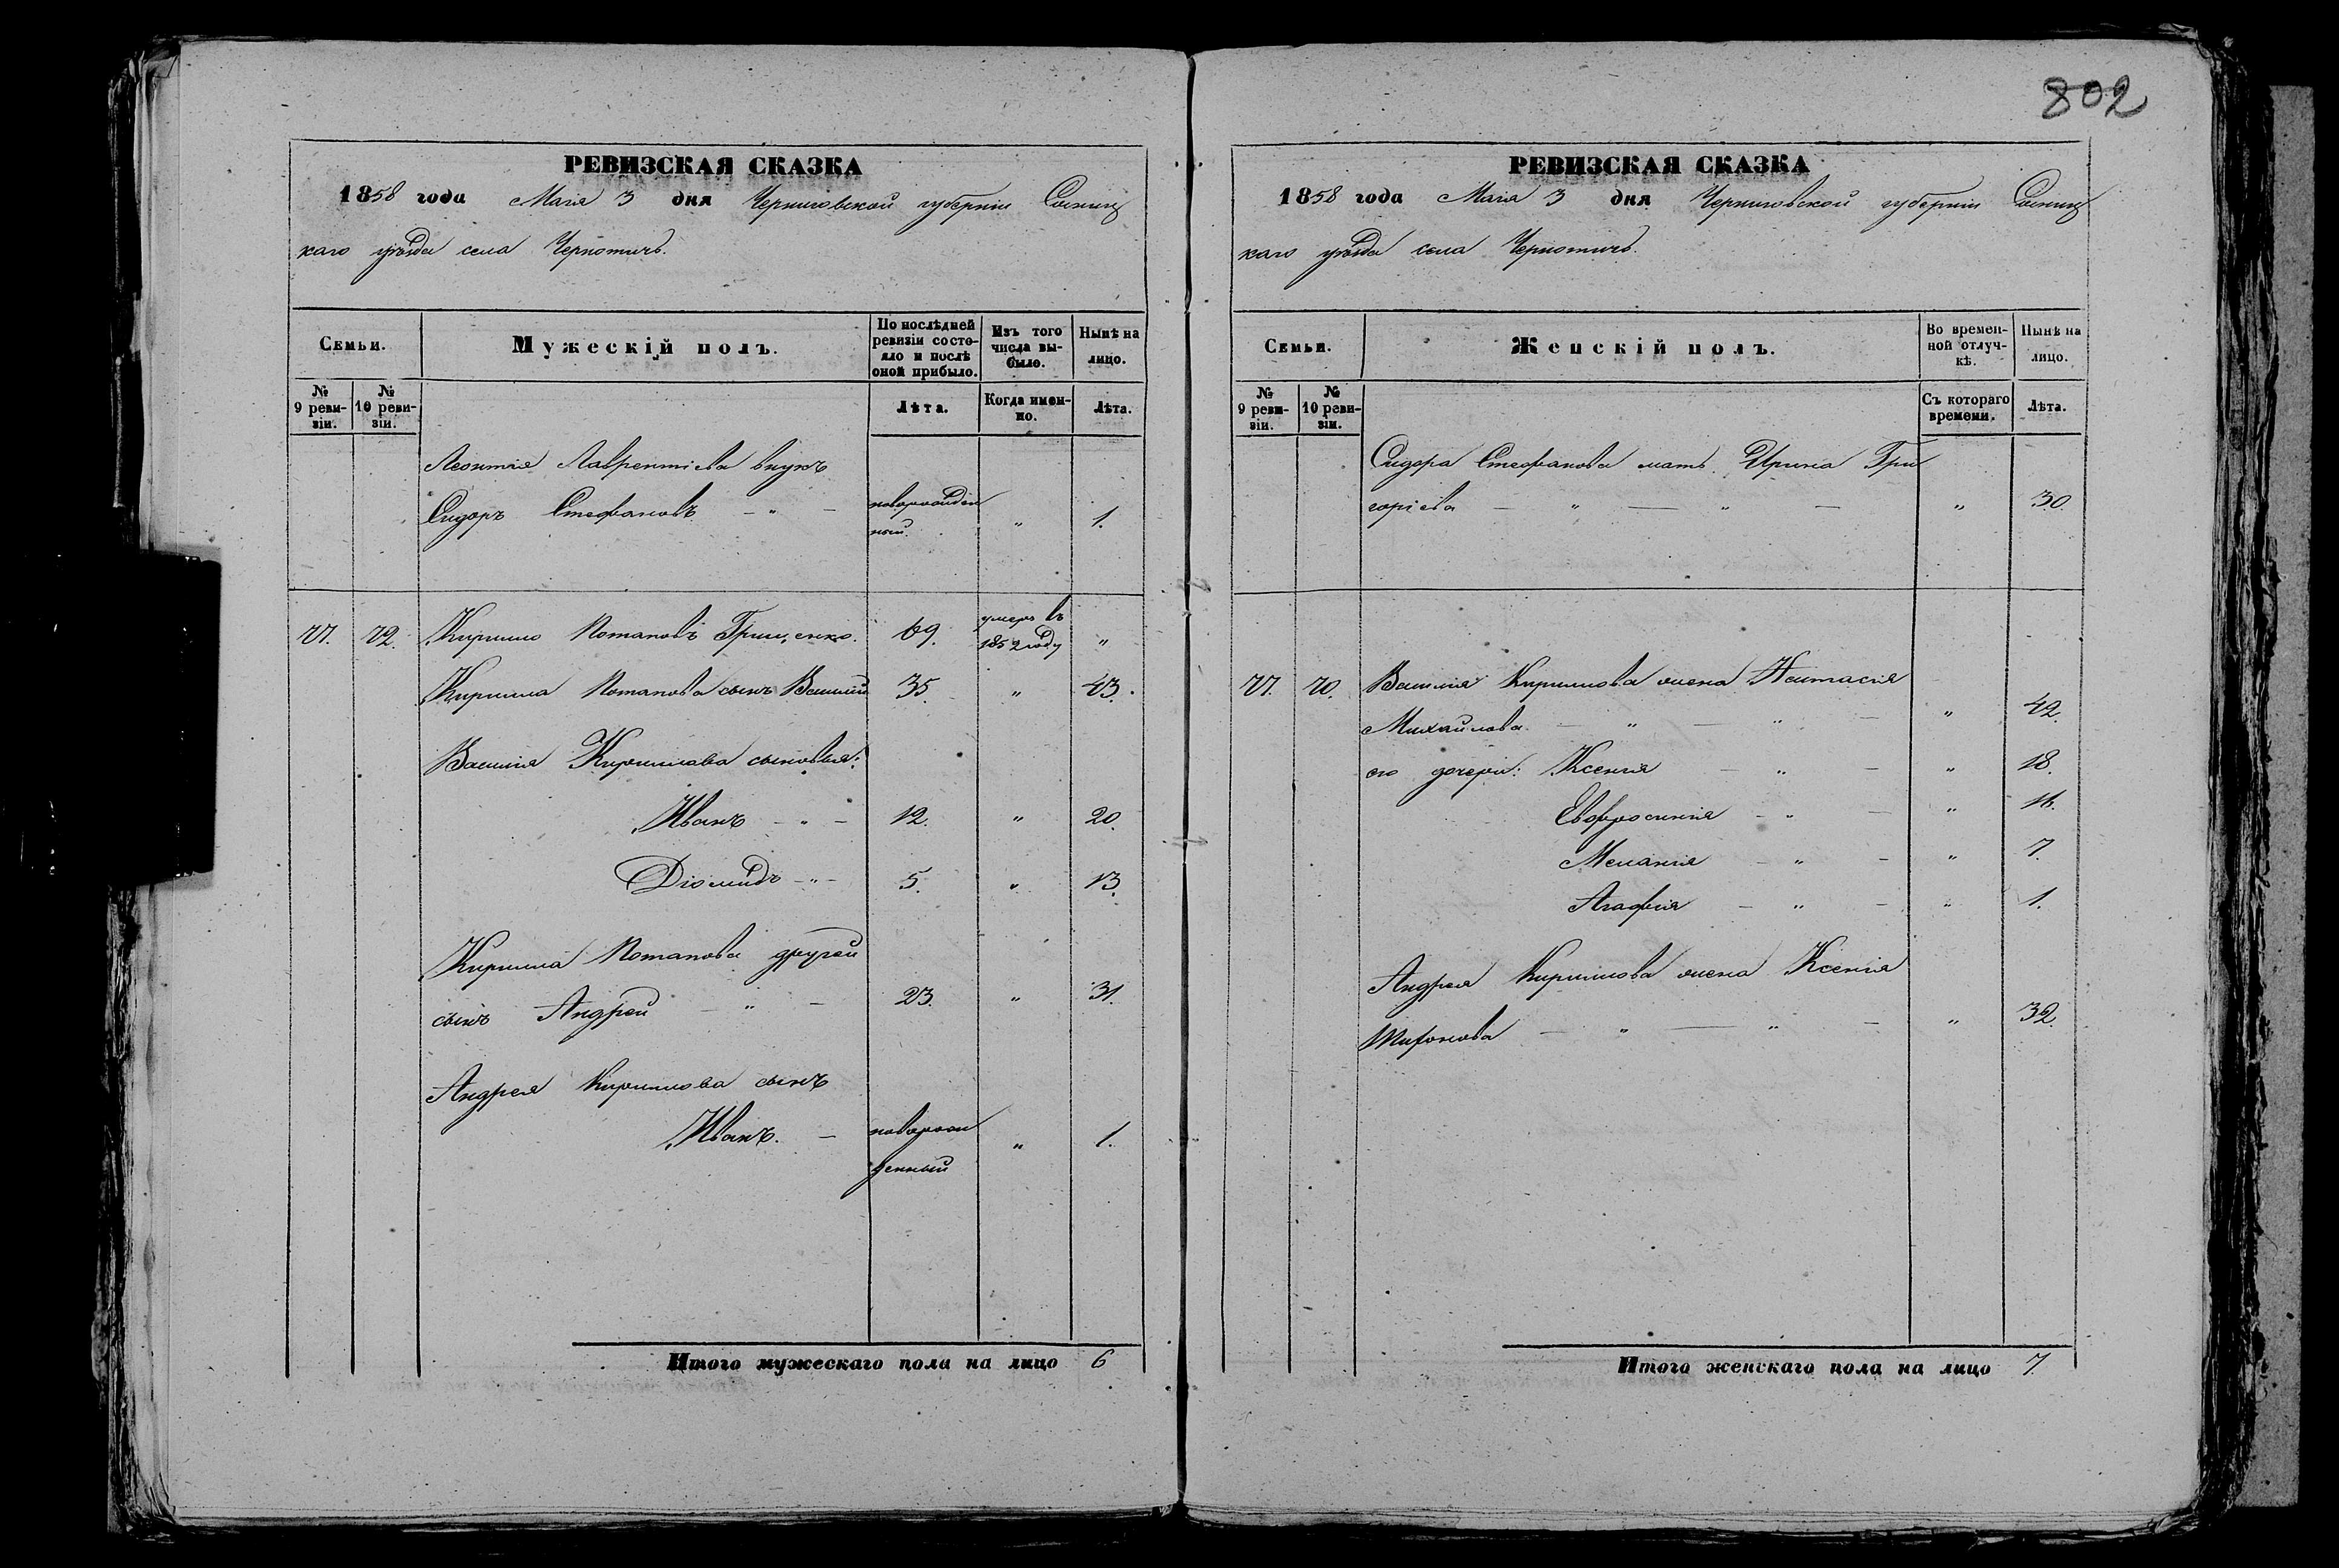 802
РЕВИЗСКАЯ СКАЗКА
1858 года Маія 3 дня Черниговской губерніи Сосниц
каго уѣзда села Чернотичь.
Семьи.
Мужескій полъ.
По послѣдней ревизіи состояло и послѣ оной прибыло.
Изъ того числа выбыло.
Нынѣ на лицо.
№ 9 ревизіи.
№ 10 ревизіи.
Лѣта.
Когда именно.
Лѣта.
Леонтія Лаврентіева внукъ
Сидоръ Стефановъ — " — новорожден " 1.
ный.
умеръ въ
77. 72. Кирило Потаповъ Грищенко. 69. 1852 году "
Кирила Потапова сынъ Василій 35. " 43.
Василія Кирилова сыновья:
Иванъ — " — 12. " 20.
Діомидъ — " — 5. " 13.
Кирила Потапова другой
сынъ Андрей — " — 23. " 31.
Андрея Кирилова сынъ
Иванъ. — новорож " 1.
денный
Итого мужескаго пола на лицо 6
РЕВИЗСКАЯ СКАЗКА
1858 года Маія 3 дня Черниговской губерніи Сосниц
каго уѣзда села Чернотичь.
Семьи.
Женскій полъ.
Во временной отлучкѣ.
Нынѣ на лицо.
№ 9 ревизіи.
№ 10 ревизіи.
Съ котораго времени.
Лѣта.
Сидора Стефанова мать Ирина Гри
горіева — " — " — " 30.
77. Василія Кирилова жена Настасія
Михайлова — " — " — " 42.
его дочери: Ксенія — " — " 18.
Евфросинія — " — "
Меланія — " — " 7.
Агафія — " — " 1.
Андрея Кирилова жена Ксенія
Миронова — " — " — " 32.
Итого женскаго пола на лицо 7.